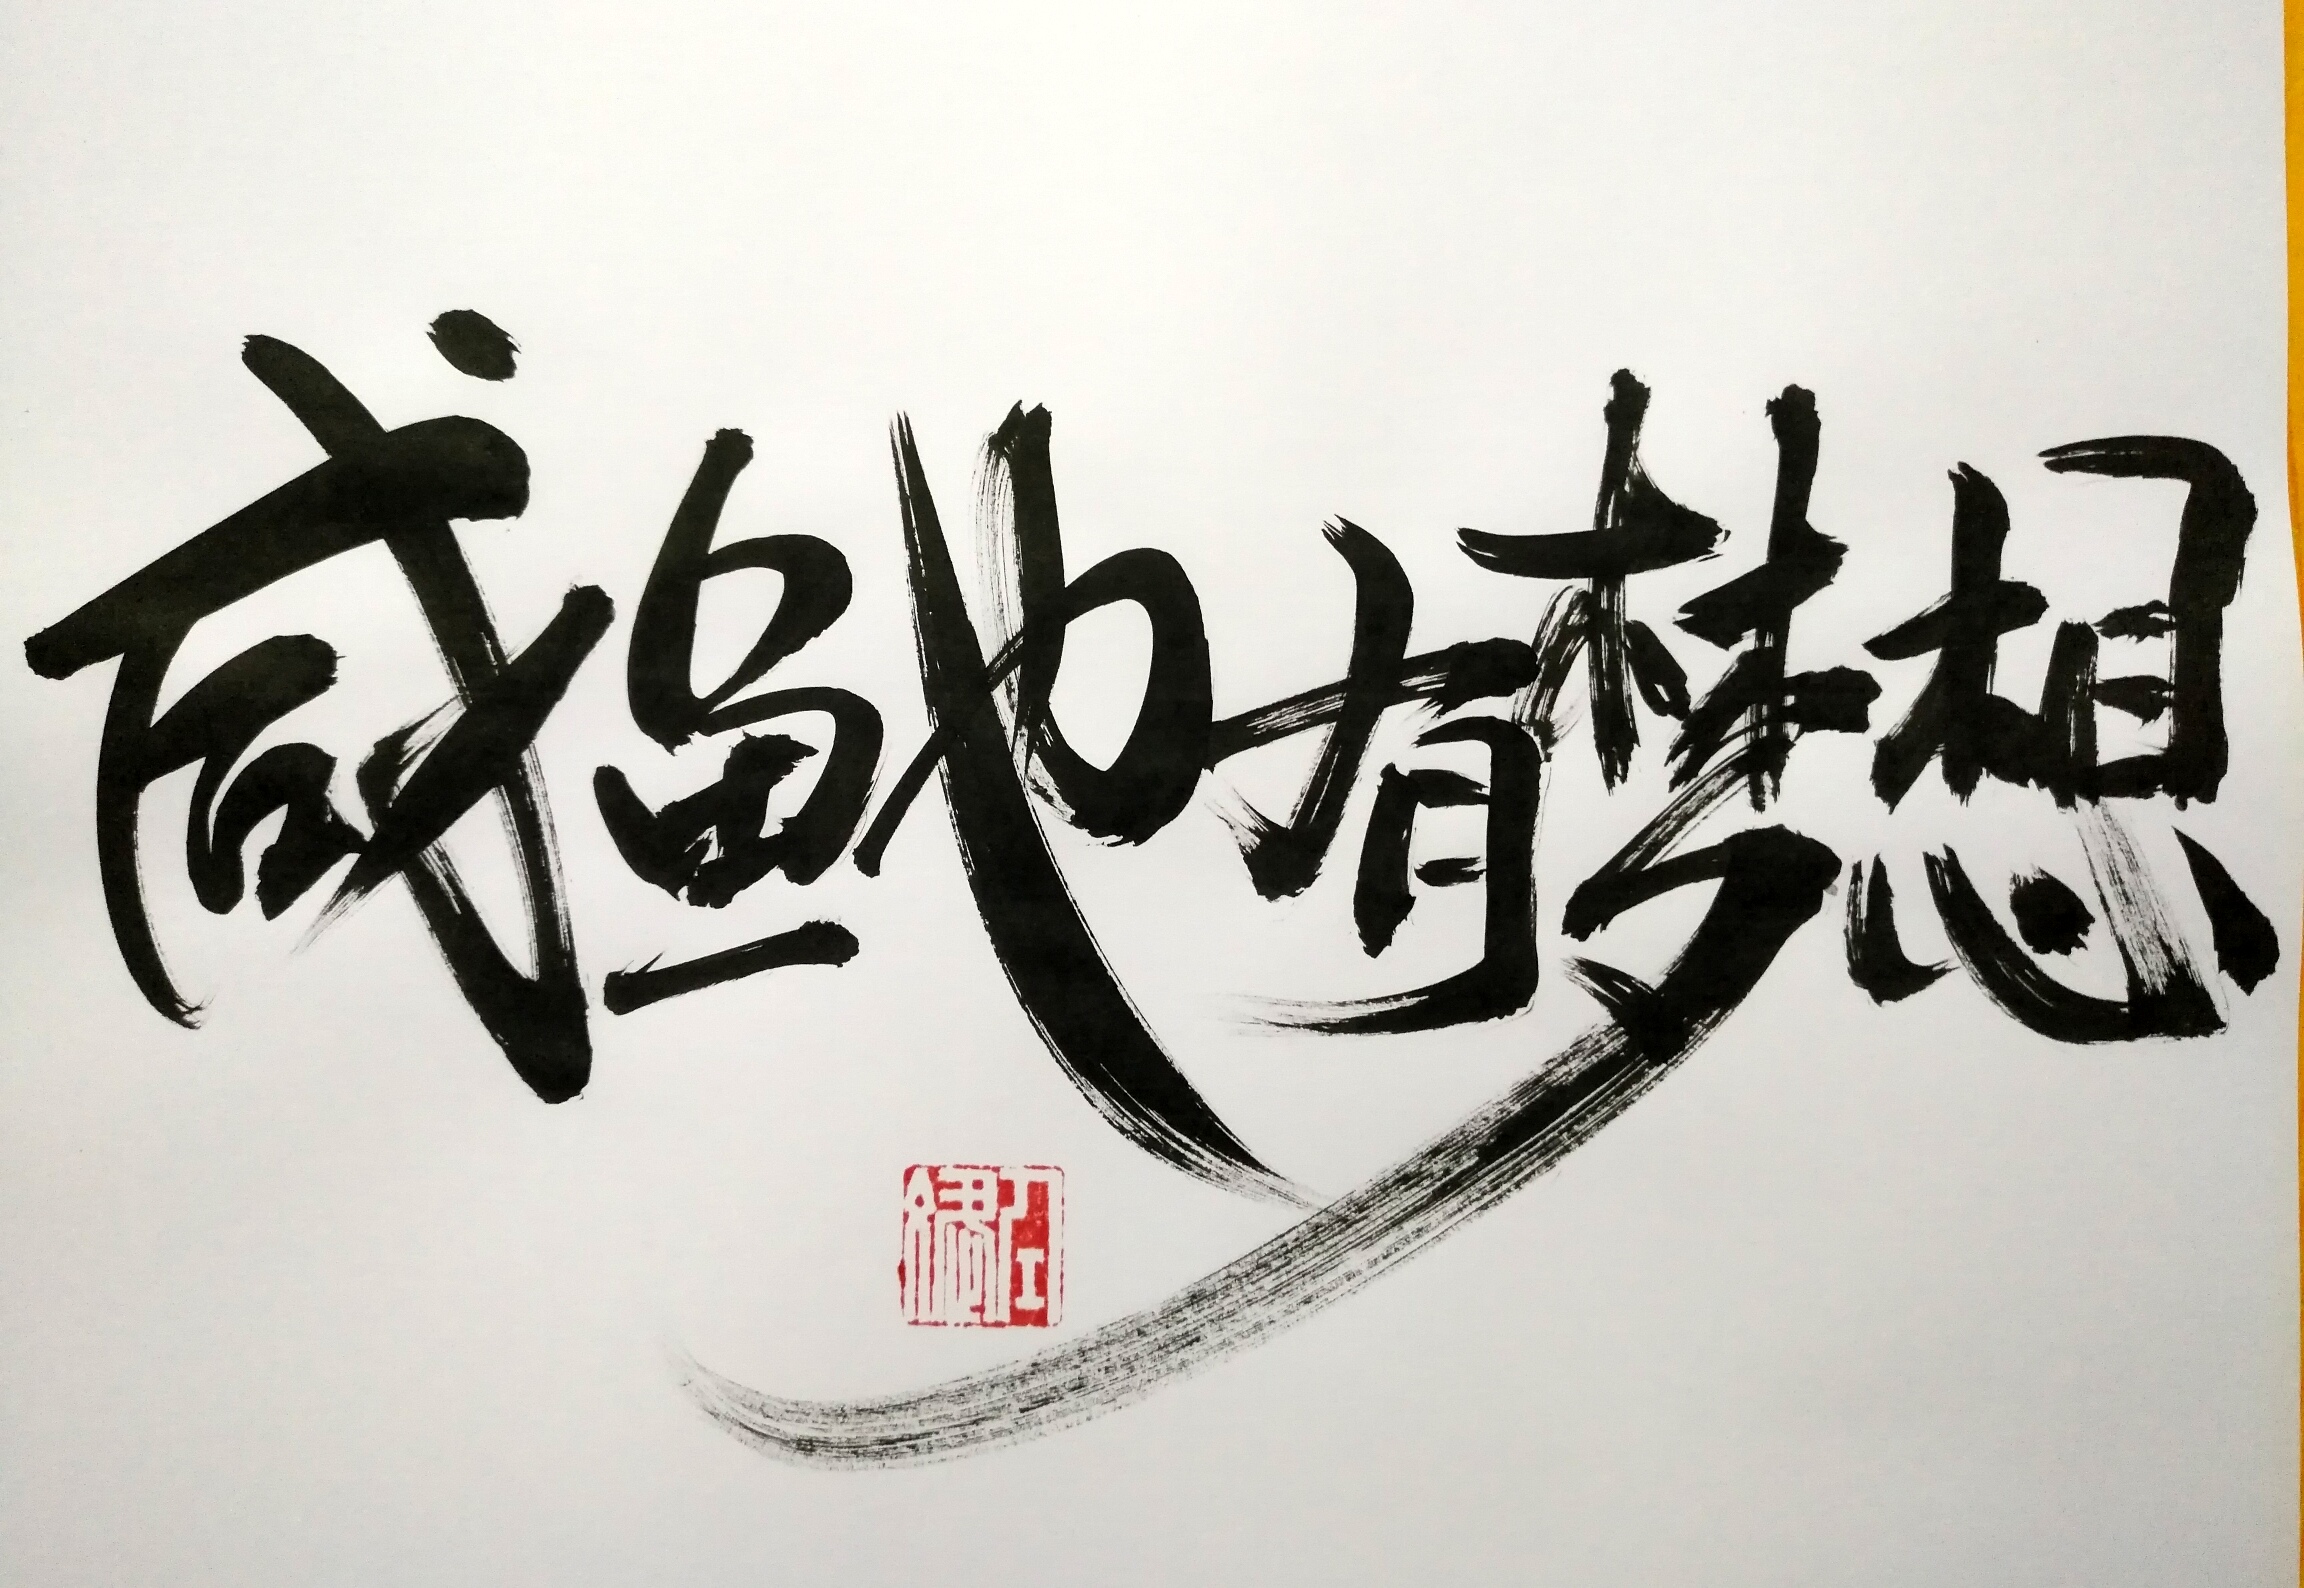 咸鱼也有梦想